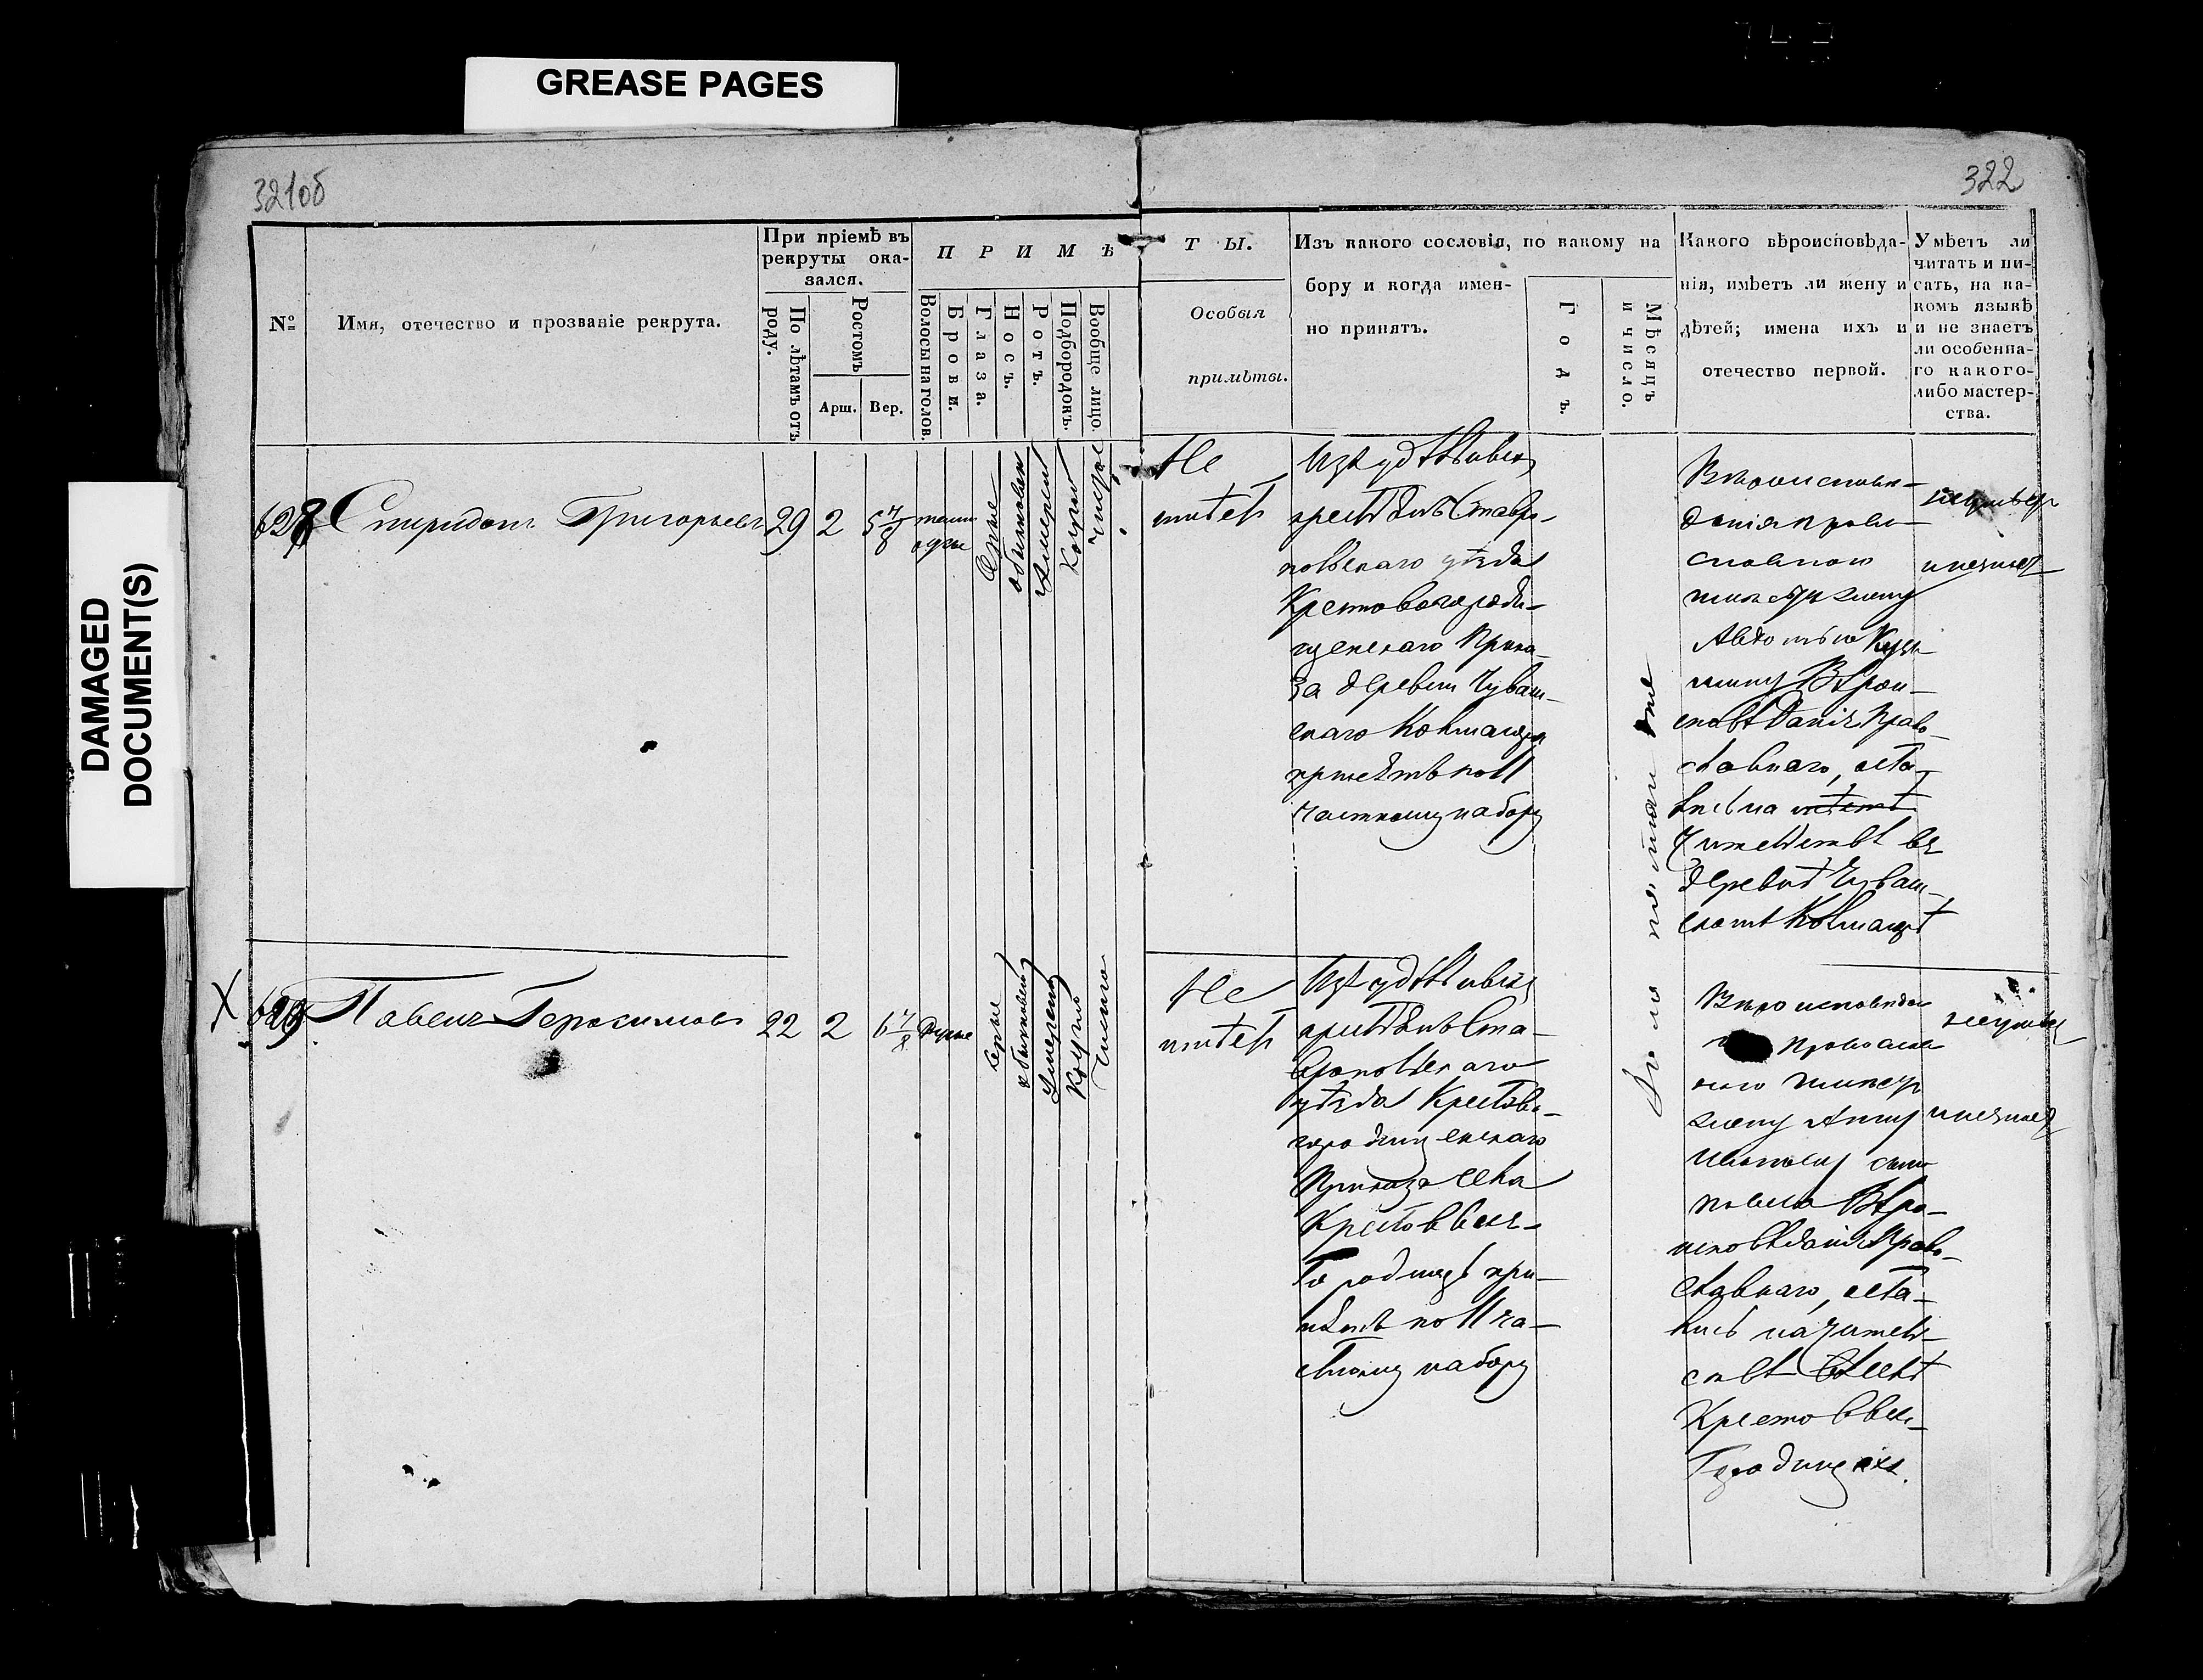 GREASE PAGES
DAMAGED
DOCUMENT(S)
321об
322
№
Имя, отечество и прозваніе рекрута.
При пріемѣ въ
рекруты ока-
зался.
По лѣтамъ отъ
роду.
Ростомъ
Арш.
Вер.
П Р И М Ѣ
Волосы на голов.
Брови.
Глаза.
Носъ.
Ротъ.
Подбородокъ.
Вообще лицо.
Т Ы.
Особыя
примѣты.
Изъ какого сословія, по какому на
бору и когда имен-
но принятъ.
Годъ.
Мѣсяцъ
и число.
Какого вѣроисповѣда-
нія, имѣетъ ли жену и
дѣтей; имена ихъ и
отечество первой.
Умѣетъ ли
читать и пи-
сать, на ка-
комъ языкѣ
и не знаетъ
ли особенна-
го какого-
либо мастер-
ства.
628
Спиридонъ Григорьевъ
29
2
5 7/8
Сѣрые
обыкновен
Умерен
Не
имѣетъ
Изъ удѣльныхъ
крестьянъ Ставро-
польскаго уѣзда
Крестовогороди-
щенскаго Прика-
за деревни Чуваш-
скаго
принятъ по 11
частному набору
Вѣроисповѣ-
данія право-
славнаго
имѣетъ жену
Авдотью Кузь-
мину Вѣрои-
сповѣданія Право-
славнаго, оста-
лись на
жительствѣ въ
деревнѣ Чуваш-
неумѣетъ
и незнаетъ
629
Павелъ Герасимовъ
22
2
6 7/8
Русые
Сѣрые
обыкновенный
Умеренный
Круглой
Чистое
Не
имѣетъ
Изъ удѣльныхъ
крестьянъ Ста-
вропольскаго
уѣзда Кресто-
городищенскаго
Приказа села
Кресто
Городищъ при-
нятъ по 11 ча-
стному набору
Вѣроисповѣда
Правосла
внаго имѣетъ
жену Анну
Иванову сына
Павла Вѣро-
исповѣданія Право-
славнаго, оста-
лись на жители-
ствѣ въ селѣ
Кресто
Городищахъ.
неумѣетъ
и незнаетъ